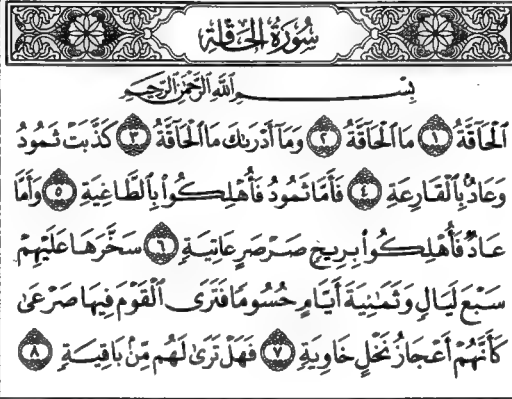 سُورَةُ الحَاقَّةِ
بِسْمِ ٱللَّهِ ٱلرَّحْمَٰنِ ٱلرَّحِيمِ
ٱلْحَآقَّةُ ١ مَا ٱلْحَآقَّةُ ٢ وَمَآ أَدْرَىٰكَ مَا ٱلْحَآقَّةُ ٣ كَذَّبَتْ ثَمُودُ
وَعَادٌۢ بِٱلْقَارِعَةِ ٤ فَأَمَّا ثَمُودُ فَأُهْلِكُوا۟ بِٱلطَّاغِيَةِ ٥ وَأَمَّا
عَادٌ فَأُهْلِكُوا۟ بِرِيحٍ صَرْصَرٍ عَاتِيَةٍ ٦ سَخَّرَهَا عَلَيْهِمْ
سَبْعَ لَيَالٍ وَثَمَٰنِيَةَ أَيَّامٍ حُسُومًا فَتَرَى ٱلْقَوْمَ فِيهَا صَرْعَىٰ
كَأَنَّهُمْ أَعْجَازُ نَخْلٍ خَاوِيَةٍ ٧ فَهَلْ تَرَىٰ لَهُم مِّنۢ بَاقِيَةٍ ٨